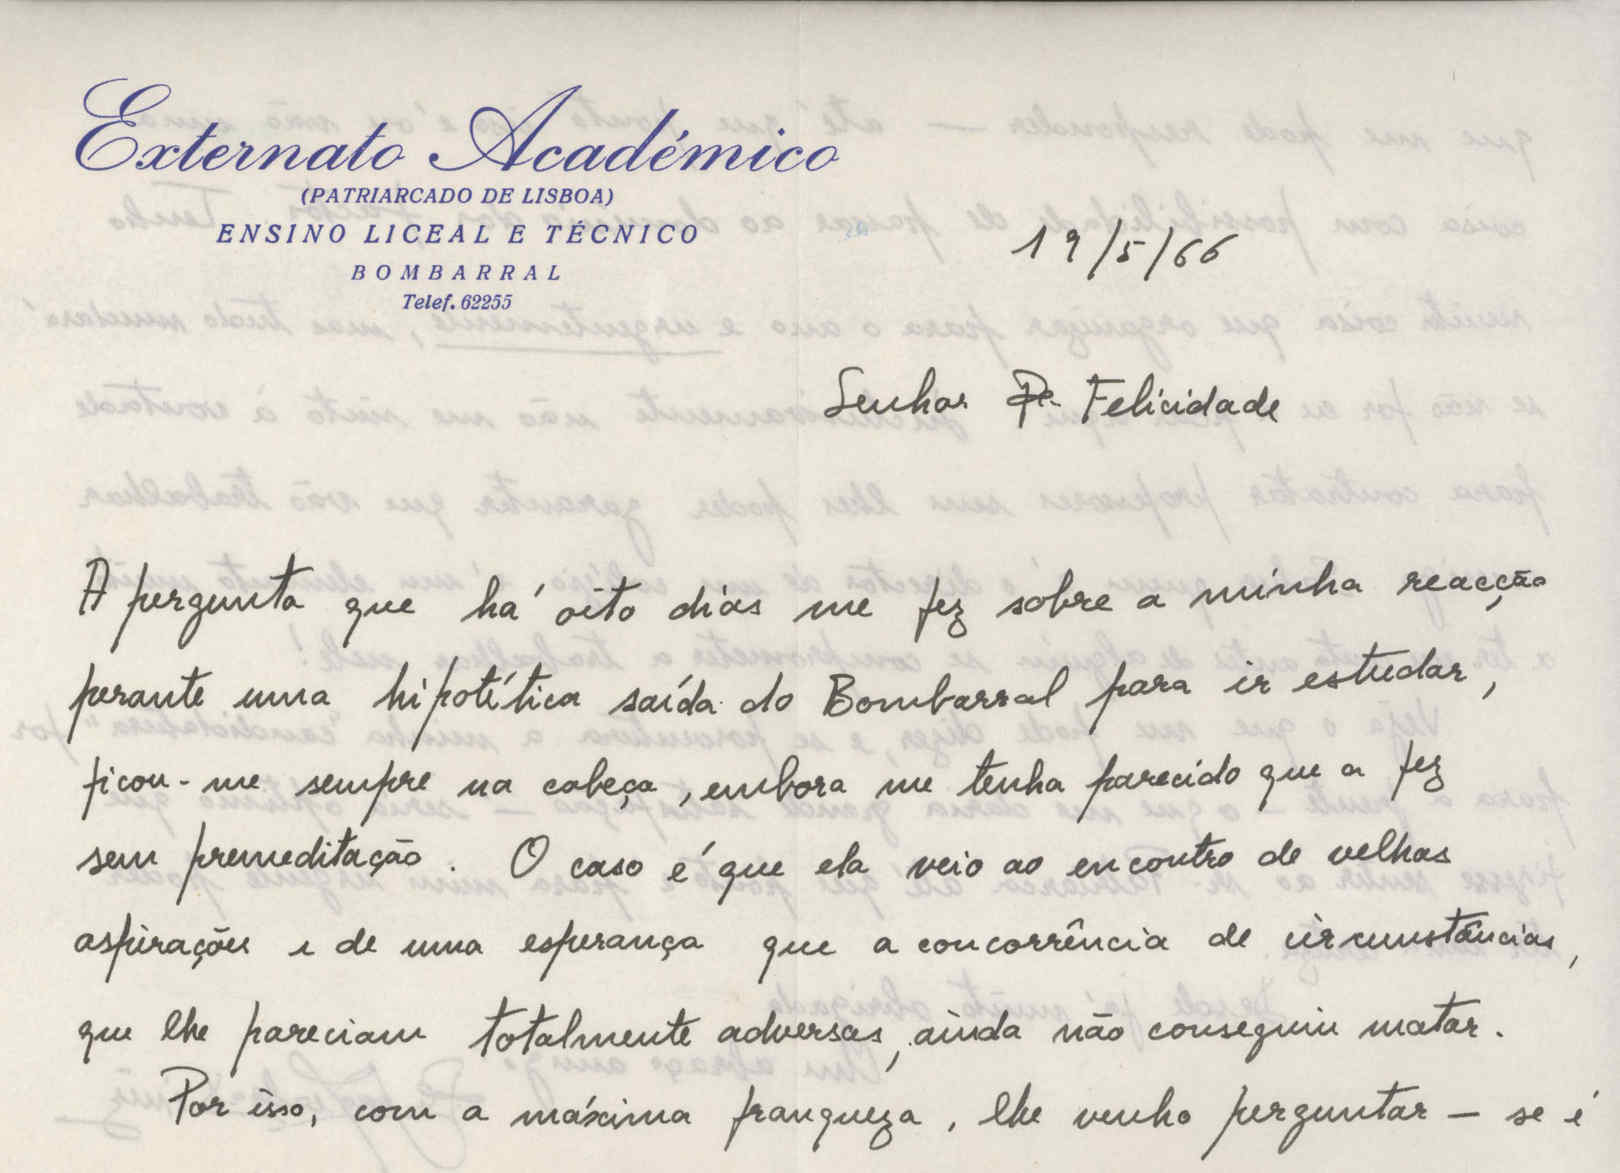 Externato Académico
(PATRIARCADO DE LISBOA)
ENSINO LICEAL E TÉCNICO
BOMBARRAL
Telef. 62255
19/5/66
Senhor Pe. Felicidade
A pergunta que há oito dias me fez sobre a minha reacção
perante uma hipotética saída do Bombarral para ir estudar,
ficou-me sempre na cabeça, embora me tenha parecido que a fez
sem premeditação. O caso é que ela veio ao encontro de velhas
aspirações e de uma esperança que a concorrência de circunstâncias,
que lhe pareciam totalmente adversas, ainda não conseguiu matar.
Por isso, com a máxima franqueza, lhe venho perguntar — se é